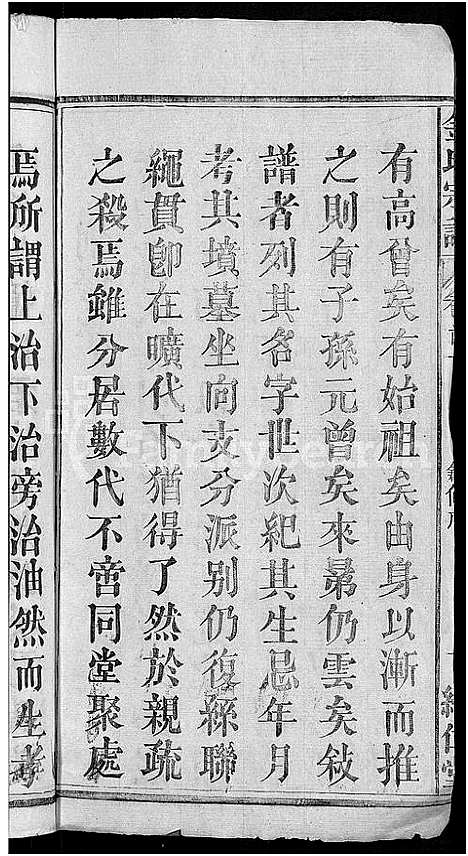 有高曾矣有始祖矣由身以漸而推
之則有子孫元曾矣來晜仍雲矣敍
譜者列其名字世次紀其生忌年月
考其墳墓坐向支分派別仍復絲聯
繩貫卽在曠代下猶得了然於親疏
之殺焉雖分居數代不啻同堂聚處
焉所謂上治下治旁治油然而生孝